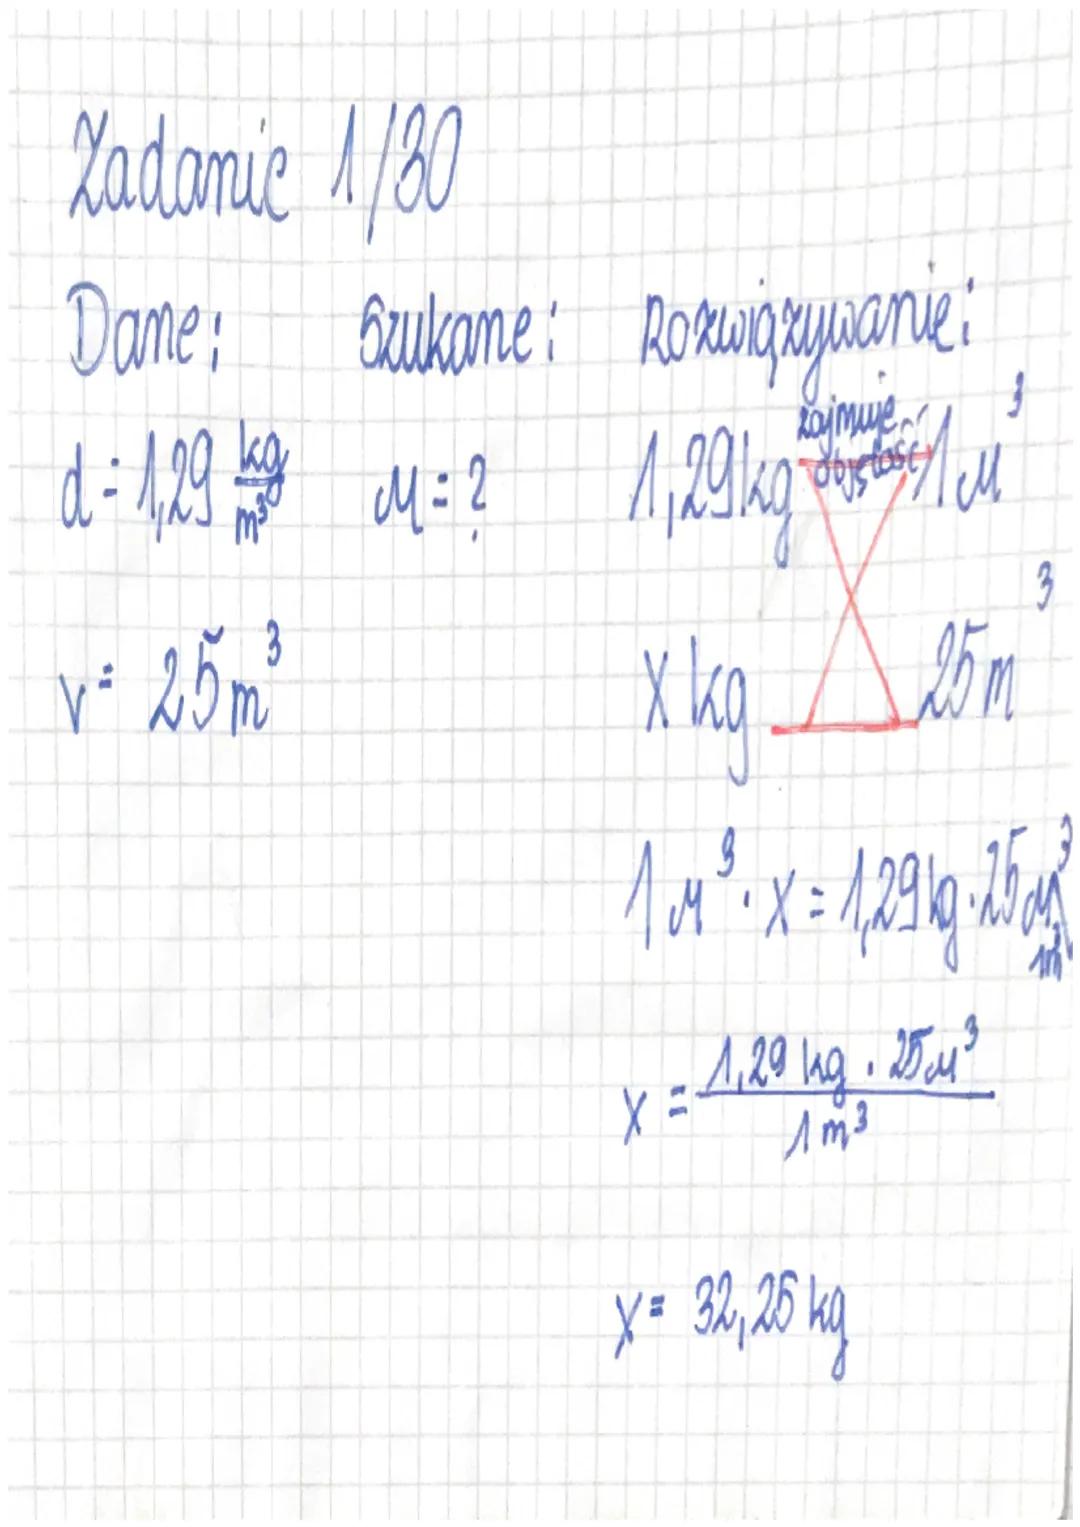 Zadanie 1/30
Dane: Szukane: Rozwiązywanie:
d = 1,29 kg/m³ M = ? 1,29 kg zajmuje objętość 1 m³
v = 25 m³ x kg 25 m³
1 m³ · x = 1,29 kg · 25 m³ \ 1m³
x = 1,29 kg · 25 m³ / 1 m³
x = 32,25 kg